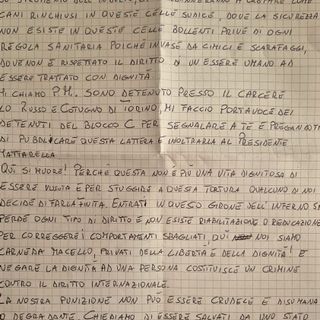 SANI RINCHIUSI IN QUESTE CELLE SUDICE, DOVE LA SICUREZZA
NON ESISTE IN QUESTE CELLE BOLLENTI PRIVE DI OGNI
REGOLA SANITARIA POICHÈ INVASE DA CIMICI E SCARAFAGGI,
DOVE NON È RISPETTATO IL DIRITTO DI UN ESSERE UMANO AD
ESSERE TRATTATO CON DIGNITÀ
MI CHIAMO P.M. SONO DETENUTO PRESSO IL CARCERE
LO RUSSO E COTUGNO DI TORINO, MI FACCIO PORTAVOCE DEI
DETENUTI DEL BLOCCO C PER SEGNALARE A TE E PREGANDOTI
DI PUBBLICARE QUESTA LATTERA E INOLTRARLA AL PRESIDENTE
MATTARELLA
QUI SI MUORE! PERCHÈ QUESTA NON È PIÙ UNA VITA DIGNITOSA DI
ESSERE VISSUTA E PER SFUGGIRE A QUESTA TORTURA QUALCUNO DI NOI
DECIDE DI FARLA FINITA. ENTRATI IN QUESTO GIRONE DELL'INFERNO SI
PERDE OGNI TIPO DI DIRITTO E NON ESISTE RIABILITAZIONE O RIEDUCAZIONE
PER CORREGGERE I COMPORTAMENTI SBAGLIATI QUI NOI SIAMO
CARNE DA MACELLO, PRIVATI DELLA LIBERTÀ E DELLA DIGNITÀ! E
NEGARE LA DIGNITÀ AD UNA PERSONA COSTITUISCE UN CRIMINE
CONTRO IL DIRITTO INTERNAZIONALE.
LA NOSTRA PUNIZIONE NON PUÒ ESSERE CRUDELE E DISUMANA
O DEGRADANTE. CHIEDIAMO DI ESSERE SALVATI DA UNO STATO